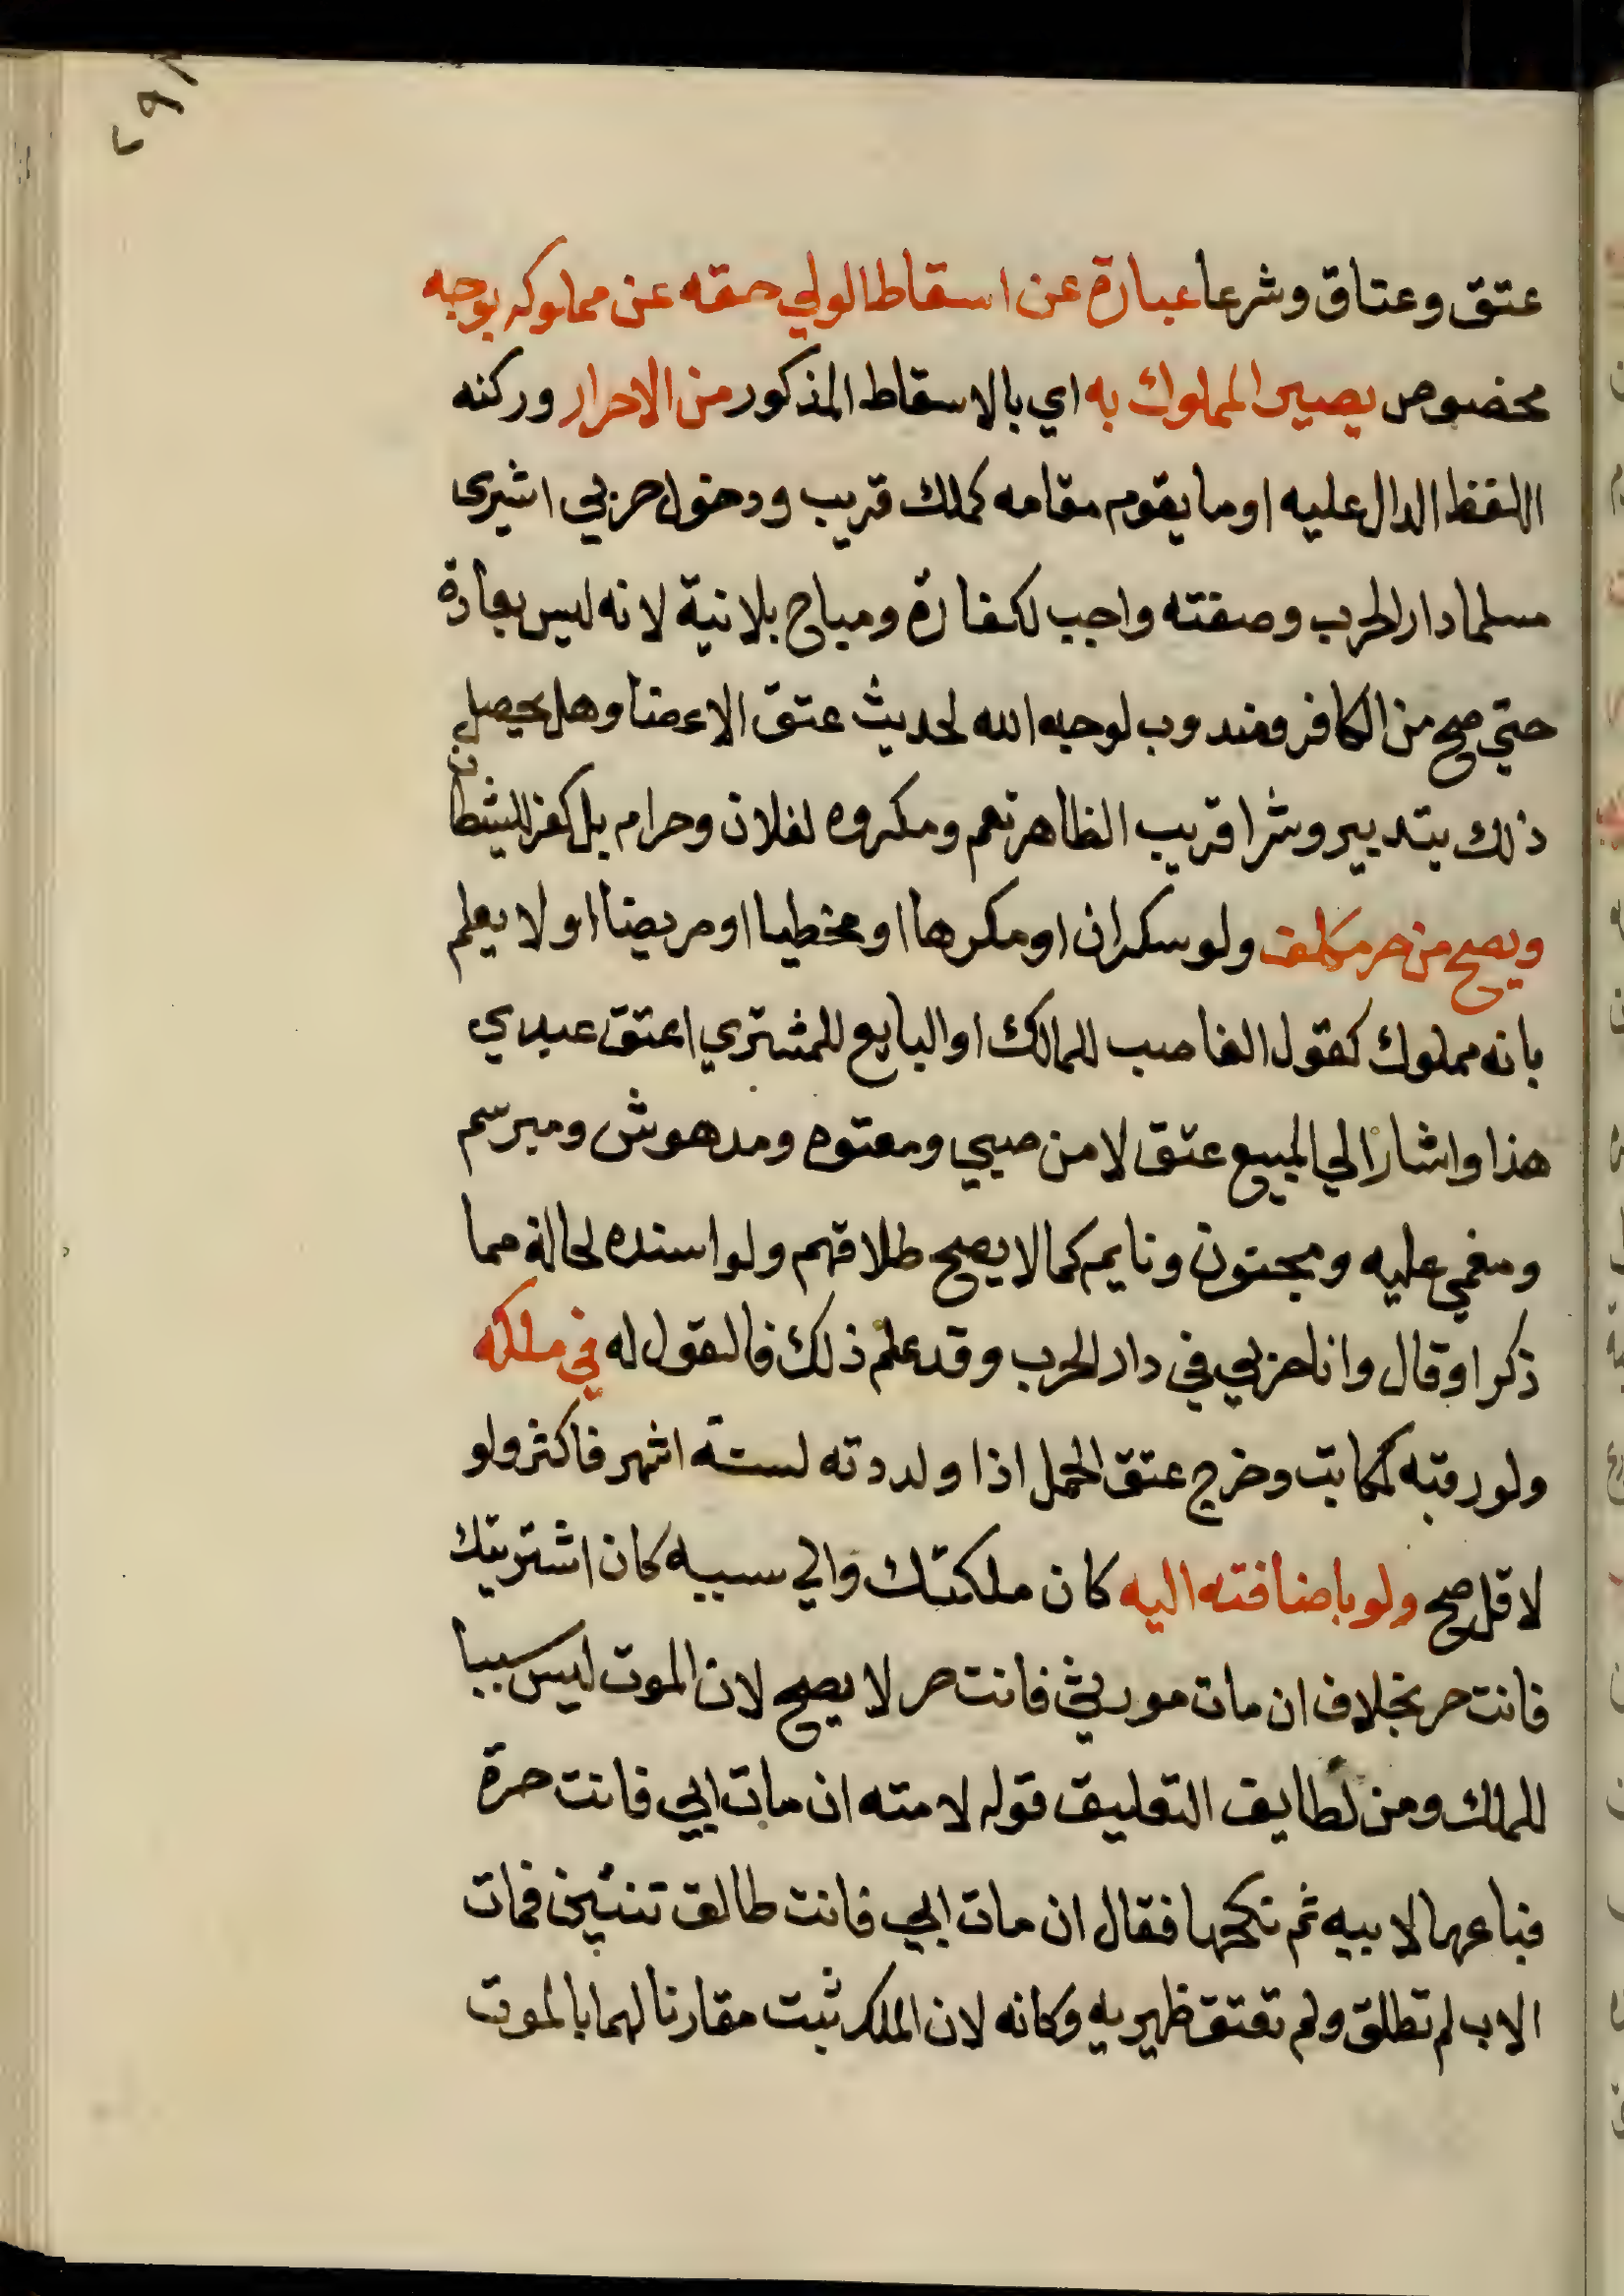 عتق وعتاق وشرعا عبارة عن اسقاط المولي حقه عن مملوكه بوجه
مخصوص يصير المملوك به اي بالاسقاط المذكور من الاحرار وركنه
اللفظ الدال عليه او ما يقوم مقامه كملك قريب ودخول حربي اشترى
مسلما دار الحرب وصفته واجب لكفارة ومباح بلا نية لانه ليس بعبادة
حتي صح من الكافر ومندوب لوجه الله لحديث عتق الاعضا وهل يحصل
ذلك بتدبير وشرا قريب الظاهر نعم ومكروه لفلان وحرام بل كفر للشيطان
ويصح من حر مكلف ولو سكران او مكرها او مخطيا او مريضا او لا يعلم
بانه مملوك كقول الغاصب للمالك او البايع للمشتري اعتق عبدي
هذا واشار الي المبيع عتق لا من صبي ومعتوه ومدهوش ومبرسم
ومغمي عليه ومجنون ونايم كما لا يصح طلاقهم ولو اسنده لحالة مما
ذكر او قال وانا حربي في دار الحرب وقد علم ذلك فالقول له في ملكه
ولو رقبه كمكاتب وخرج عتق الحمل اذا ولددته لستة اشهر فاكثر ولو
لاقل صح ولو باضافته اليه كان ملكتك والي سببه كان اشتريتك
فانت حر بخلاف ان مات مورثي فانت حر لا يصح لان الموت ليس سببا
للملك ومن لطايف التعليق قوله لامته ان مات ابي فانت حرة
فباعها لابيه ثم نكحها فقال ان مات ابي فانت طالق تنتين فمات
الاب لم تطلق ولم تعتق ظهيريه وكانه لان الملك ثبت مقارنا لهما بالموت